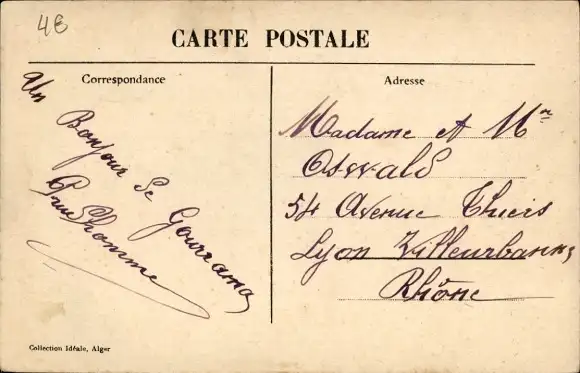 4€
CARTE POSTALE
Correspondance
Adresse
Un
Bonjour de
Gourrama
Prudhomme
Madame et Mr
Oswald
54 Avenue Thiers
Lyon Villeurbanne
Rhône
Collection Idéale, Alger